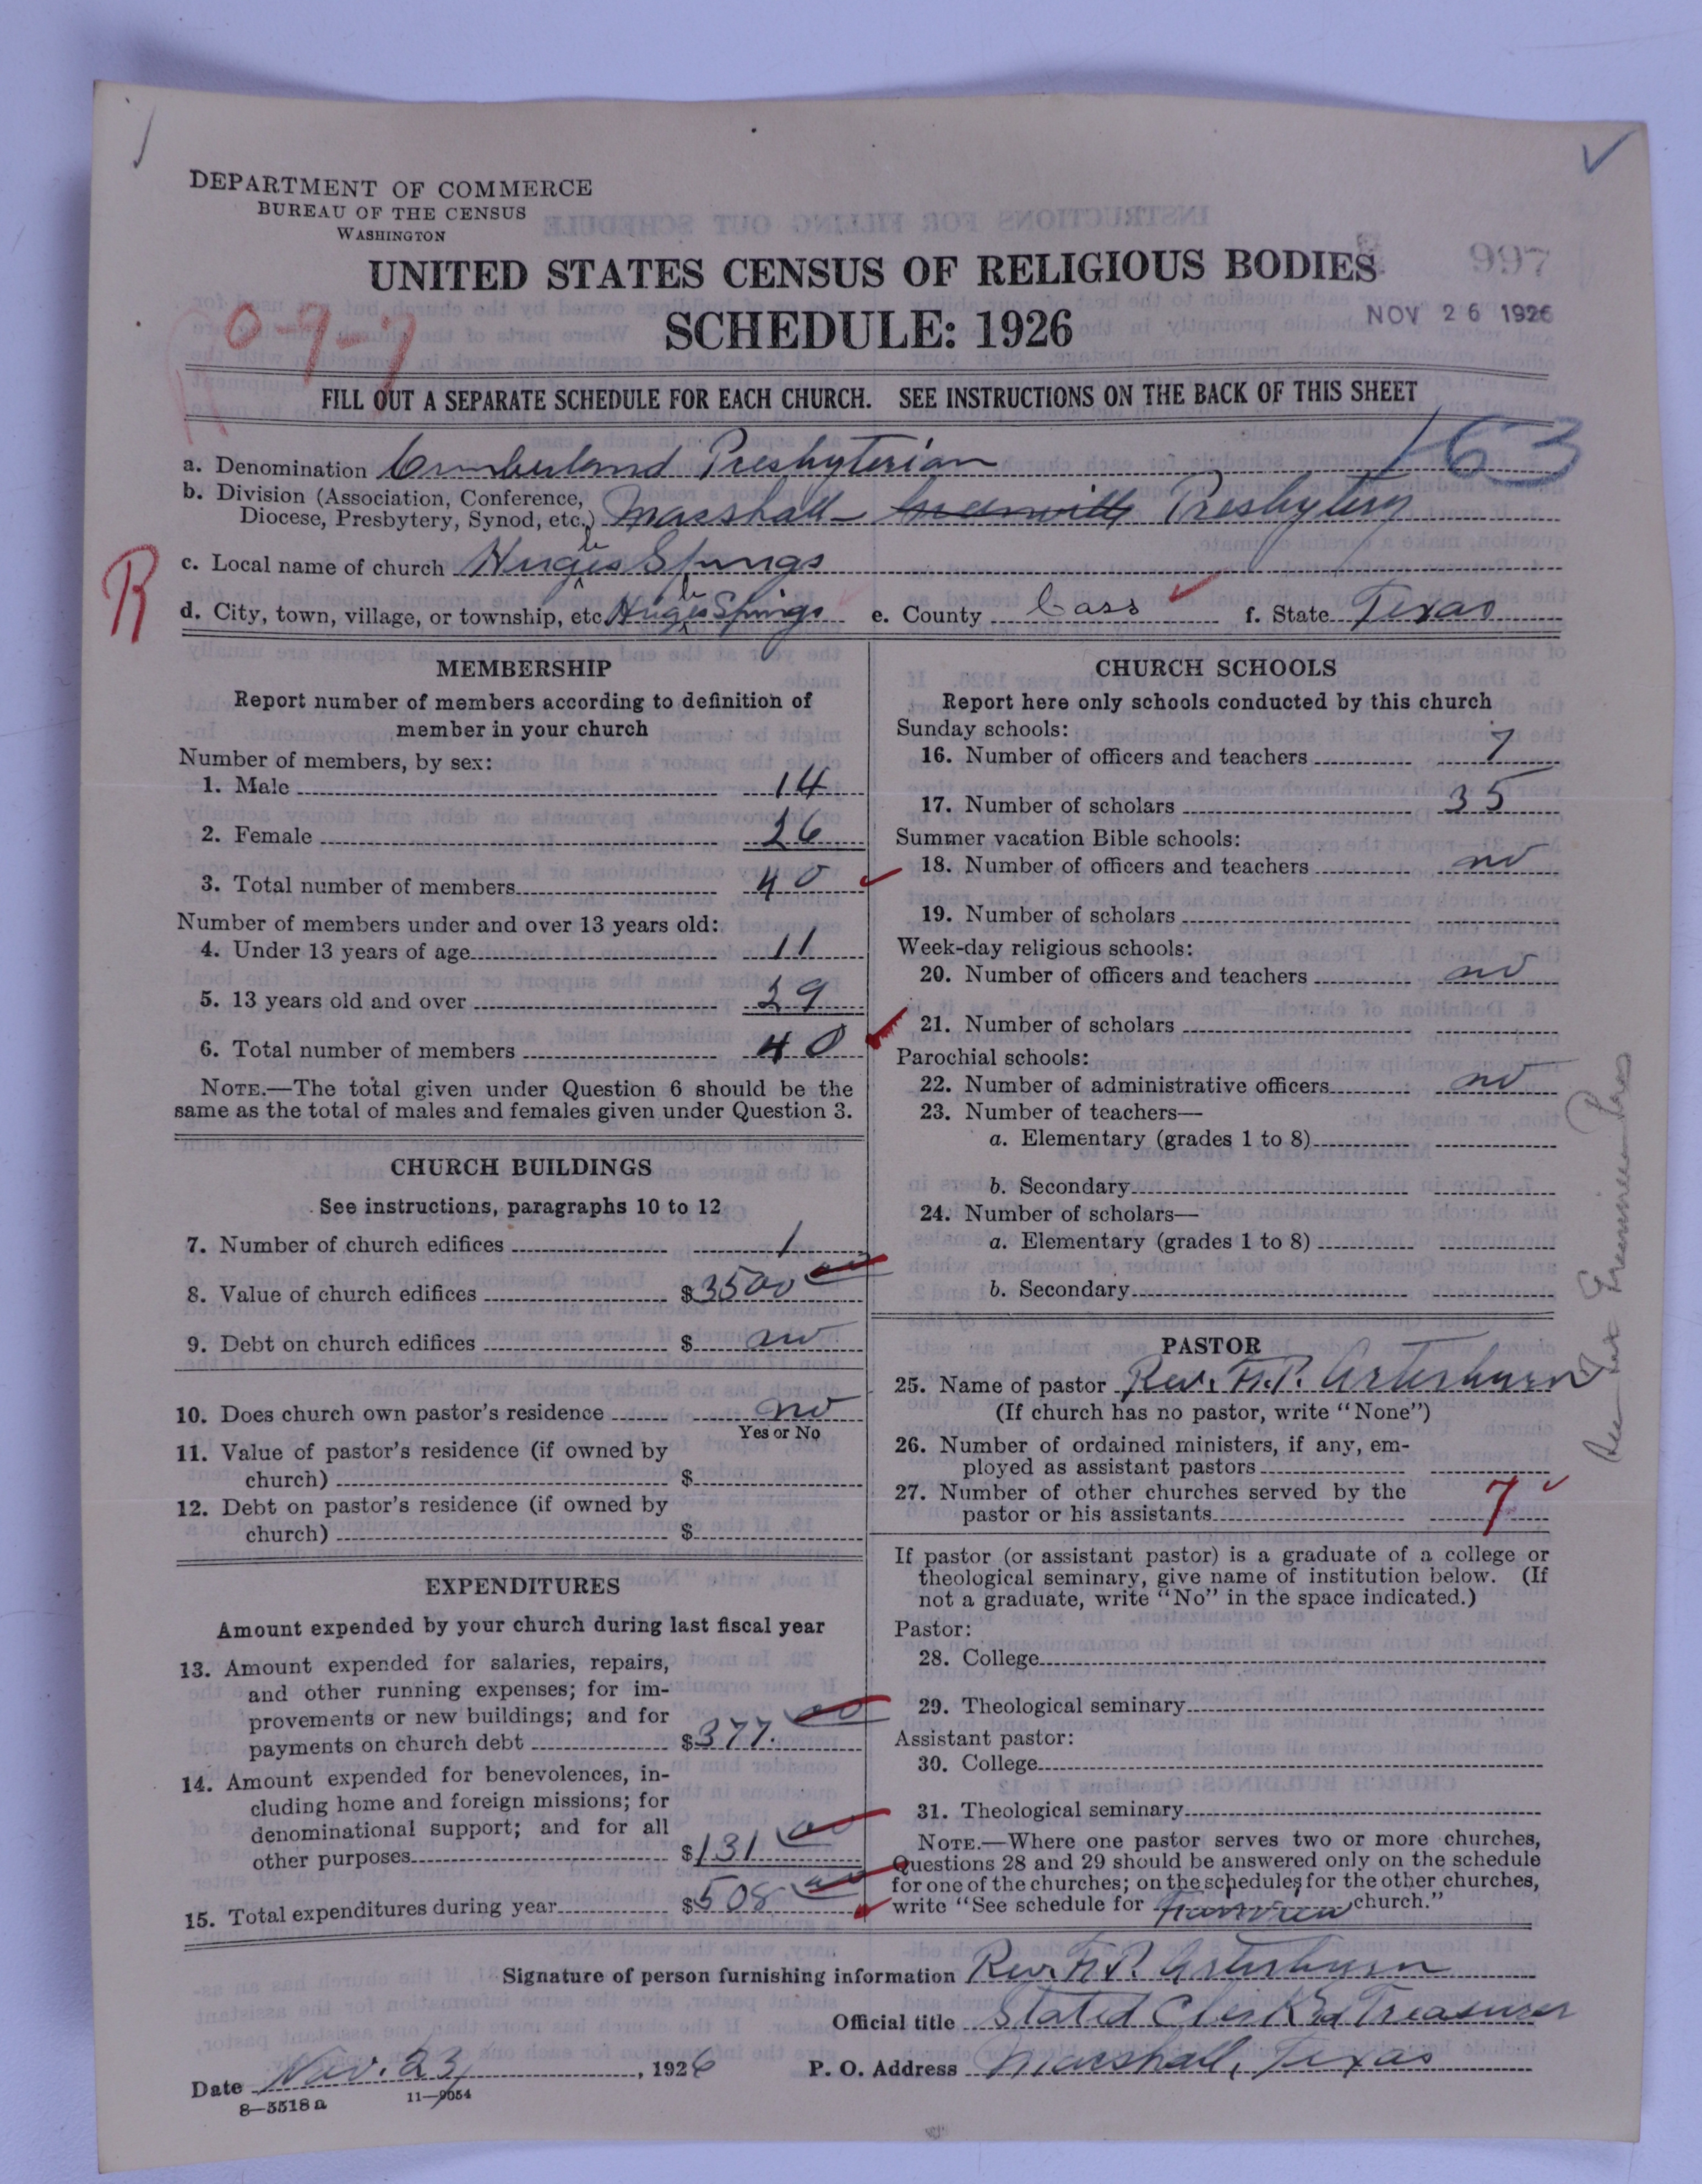 DEPARTMENT OF COMMERCE
BUREAU OF THE CENSUS
WASHINGTON
UNITED STATES CENSUS OF RELIGIOUS BODIES
SCHEDULE: 1926
997
NOV 26 1926
0-9-7
FILL OUT A SEPARATE SCHEDULE FOR EACH CHURCH. SEE INSTRUCTIONS ON THE BACK OF THIS SHEET
163
a. Denomination Cumberland Presbyterian
b. Division (Association, Conference, Diocese, Presbytery, Synod, etc.) Marshall Greenville Presbytery
R
c. Local name of church Hughes Springs
d. City, town, village, or township, etc. Hughes Springs e. County Cass f. State Texas
MEMBERSHIP
Report number of members according to definition of
member in your church
Number of members, by sex:
1. Male 14
2. Female 26
3. Total number of members 40
Number of members under and over 13 years old:
4. Under 13 years of age 11
5. 13 years old and over 29
6. Total number of members 40
NOTE.—The total given under Question 6 should be the
same as the total of males and females given under Question 3.
CHURCH BUILDINGS
See instructions, paragraphs 10 to 12
7. Number of church edifices 1
8. Value of church edifices $3500 00
9. Debt on church edifices $ no
10. Does church own pastor's residence no
Yes or No
11. Value of pastor's residence (if owned by
church) $
12. Debt on pastor's residence (if owned by
church) $
EXPENDITURES
Amount expended by your church during last fiscal year
13. Amount expended for salaries, repairs,
and other running expenses; for im-
provements or new buildings; and for
payments on church debt $377.00
14. Amount expended for benevolences, in-
cluding home and foreign missions; for
denominational support; and for all
other purposes $131 00
15. Total expenditures during year $508 00
CHURCH SCHOOLS
Report here only schools conducted by this church
Sunday schools:
16. Number of officers and teachers 7
17. Number of scholars 35
Summer vacation Bible schools:
18. Number of officers and teachers no
19. Number of scholars
Week-day religious schools:
20. Number of officers and teachers no
21. Number of scholars
Parochial schools:
22. Number of administrative officers no
23. Number of teachers—
a. Elementary (grades 1 to 8)
b. Secondary
24. Number of scholars—
a. Elementary (grades 1 to 8)
b. Secondary
PASTOR
25. Name of pastor Rev. F.P. Arterburn
(If church has no pastor, write "None")
26. Number of ordained ministers, if any, em-
ployed as assistant pastors
27. Number of other churches served by the
pastor or his assistants 7
If pastor (or assistant pastor) is a graduate of a college or
theological seminary, give name of institution below. (If
not a graduate, write "No" in the space indicated.)
Pastor:
28. College
29. Theological seminary
Assistant pastor:
30. College
31. Theological seminary
NOTE.—Where one pastor serves two or more churches,
Questions 28 and 29 should be answered only on the schedule
for one of the churches; on the schedules for the other churches,
write "See schedule for church."
Signature of person furnishing information Rev. F.P. Arterburn
Official title Stated Clerk and Treasurer
Date Nov. 23, 1926 P. O. Address Marshall, Texas
8—5518a 11—9054